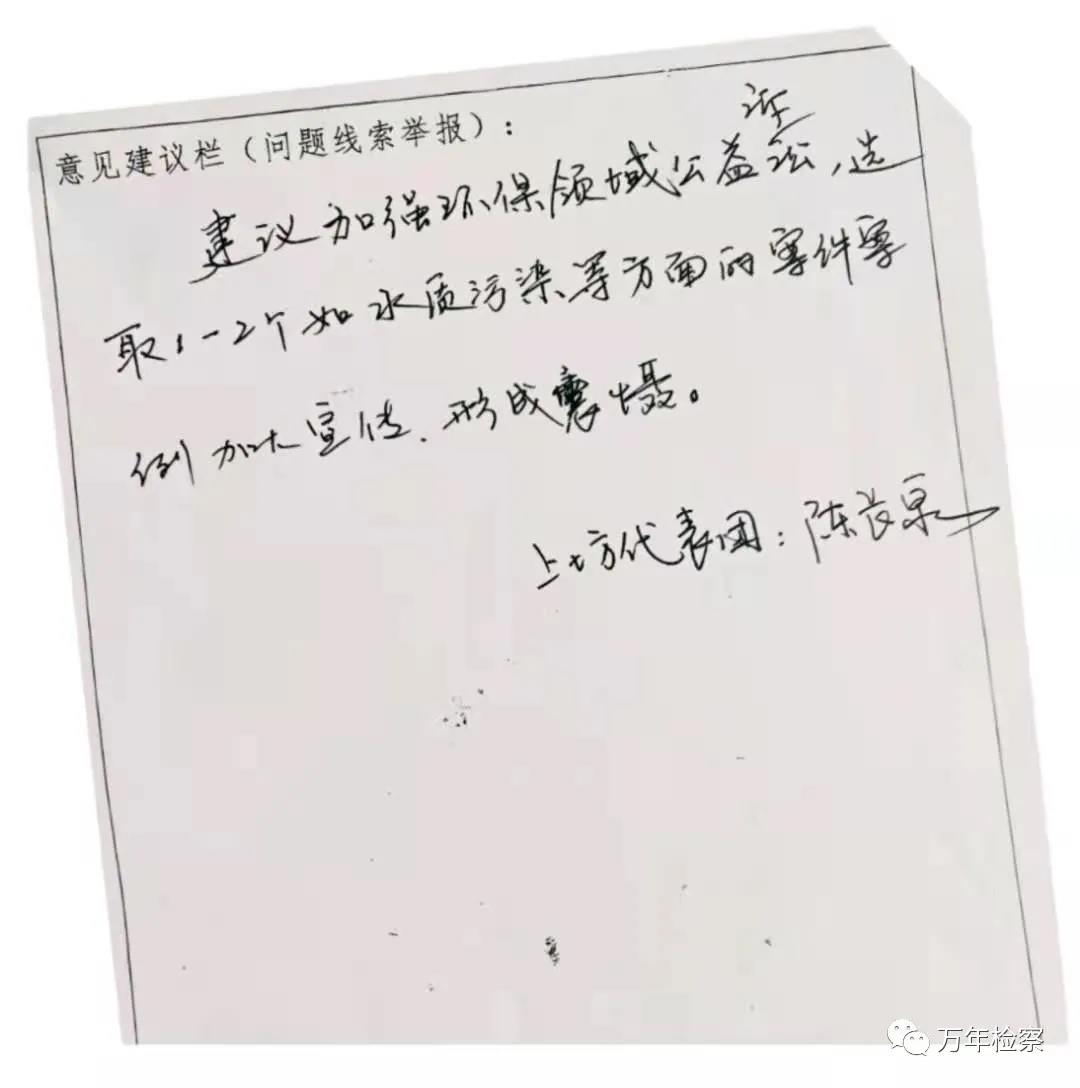 意见建议栏（问题线索举报）：
建议加强环保领域公益诉讼，选
取1-2个如水质污染等方面的案件案
例加大宣传、形成震慑。
上坊代表团：陈长泉
万年检察